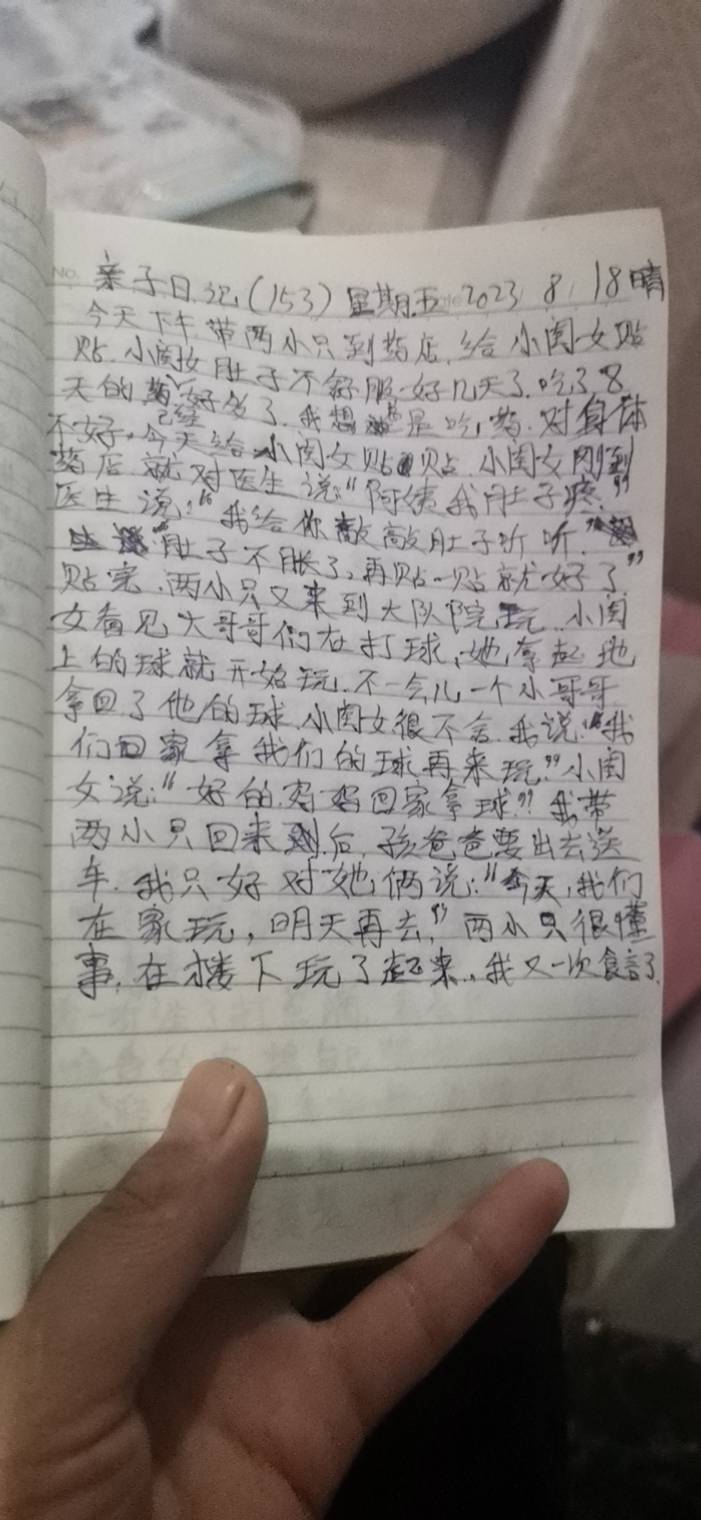 No. 亲子日记(153) 星期五 2023 8 18晴
今天下午.带两小只到药店.给小闺女贴
贴.小闺女肚子不舒服好几天了.吃了8
天的药已经好多了.我想总是吃药.对身体
不好.今天给小闺女贴贴.小闺女刚到
药店就对医生说:“阿姨我肚子疼.”
医生说:“我给你敲敲肚子听听.”
“肚子不胀了,再贴一贴就好了”
贴完.两小只又来到大队院玩.小闺
女看见大哥哥们在打球,她拿起地
上的球就开始玩.不一会儿一个小哥哥
拿回了他的球.小闺女很不舍.我说:“我
们回家拿我们的球再来玩.”小闺
女说:“好的.妈妈回家拿球.”我带
两小只回来到后,孩爸爸要出去送
车.我只好对她俩说:“今天,我们
在家玩,明天再去,”两小只很懂
事.在楼下玩了起来..我又一次食言了.